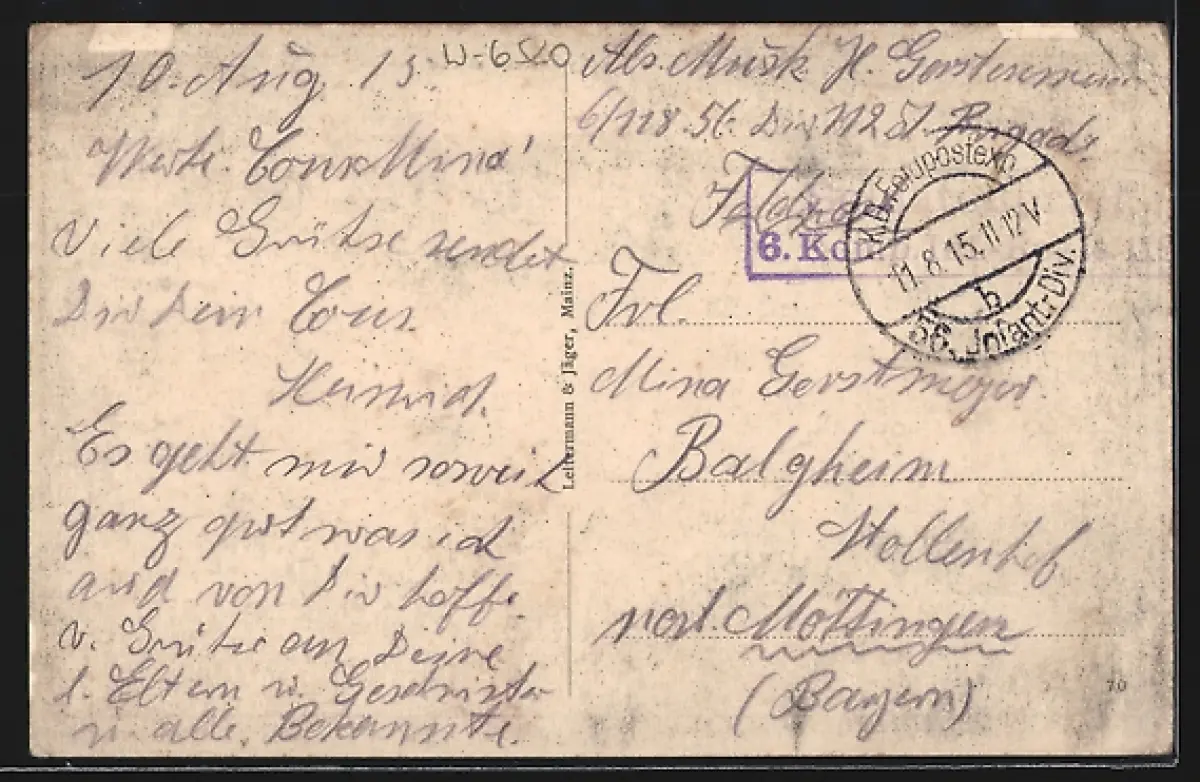 10. Aug. 15.
W-6520
Werte Cous. Mina!
Viele Grütse sendet
Dir Dein Cous.
Heinrich.
Es geht mir soweit
ganz gut was ich
auch von Dir hoffe.
v. Grütse an Deine
l. Eltern u. Geschwister
u. alle Bekannte.
Leitermann & Jäger, Mainz.
Abs. Musk. H. Gerstenmeier
6/118 56. Div 112 I. Brigade
6. Kom
K.D. Feldpostexp.
11.8.15.11-12V
b
56. Infant.-Div.
Frl.
Mina Gerstmeyer
Balgheim
Stollenhof
Möttingen
(Bayern)
70